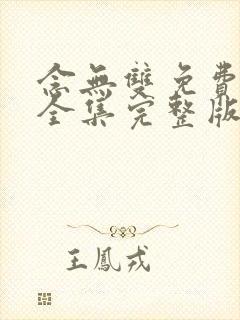 念無雙免費
全集完整版
王鳳戎